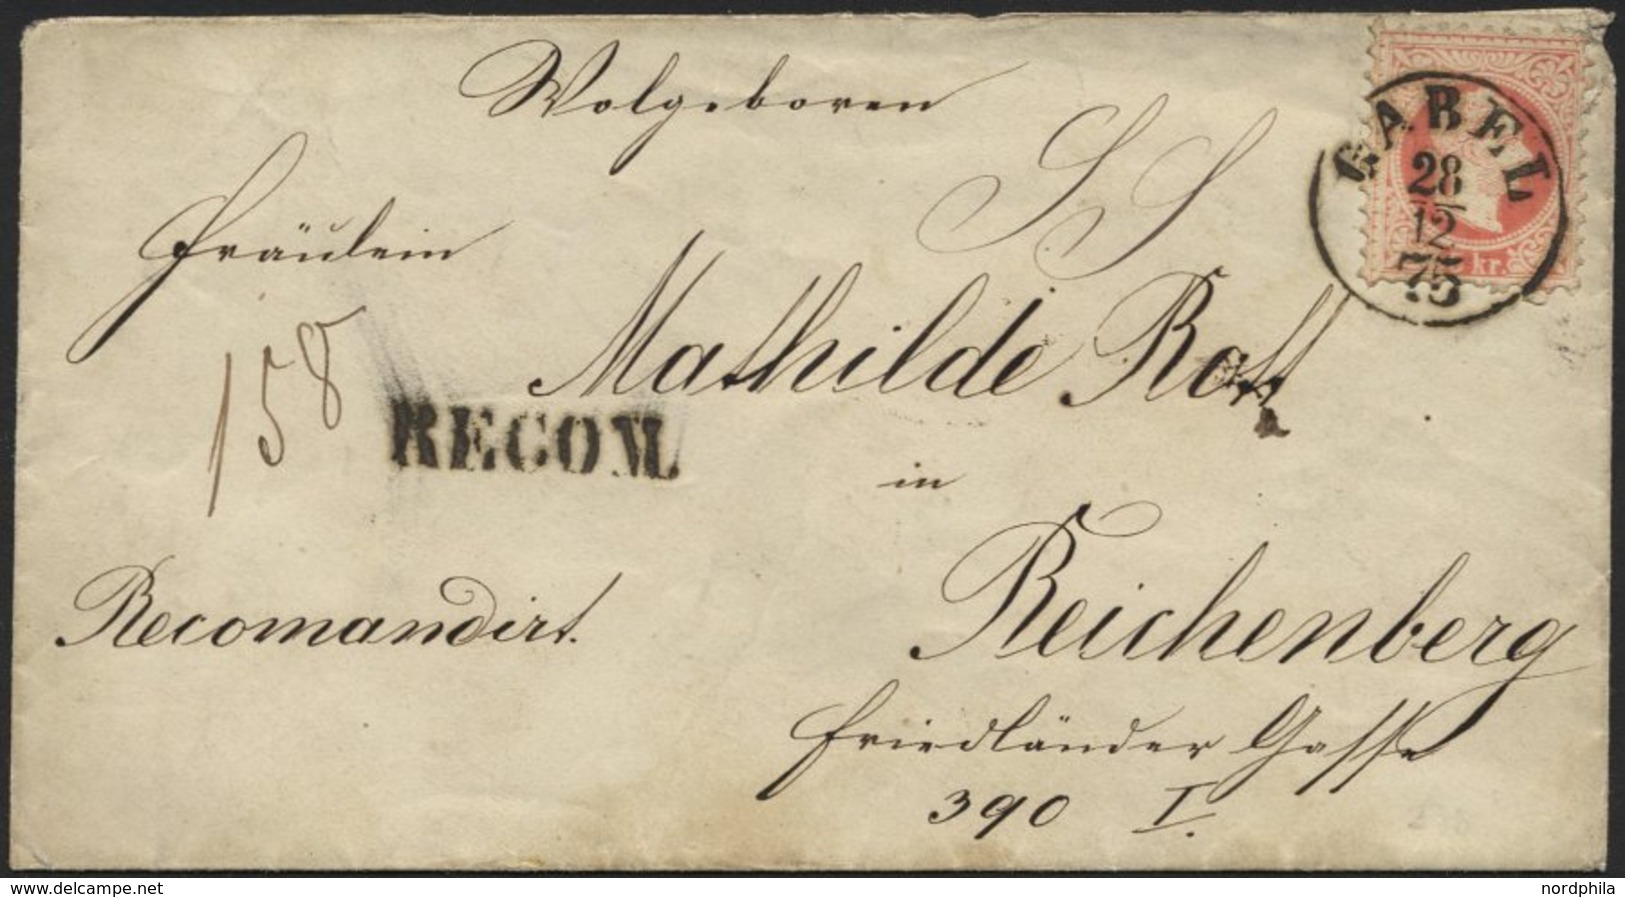 Wolgeboren
GABEL
28
12
75
kr.
Fräulein
SS
Mathilde Rott
158
RECOM.
in
Recomandirt.
Reichenberg
Friedländer Gasse
390 I.
www.delcampe.net
nordphila